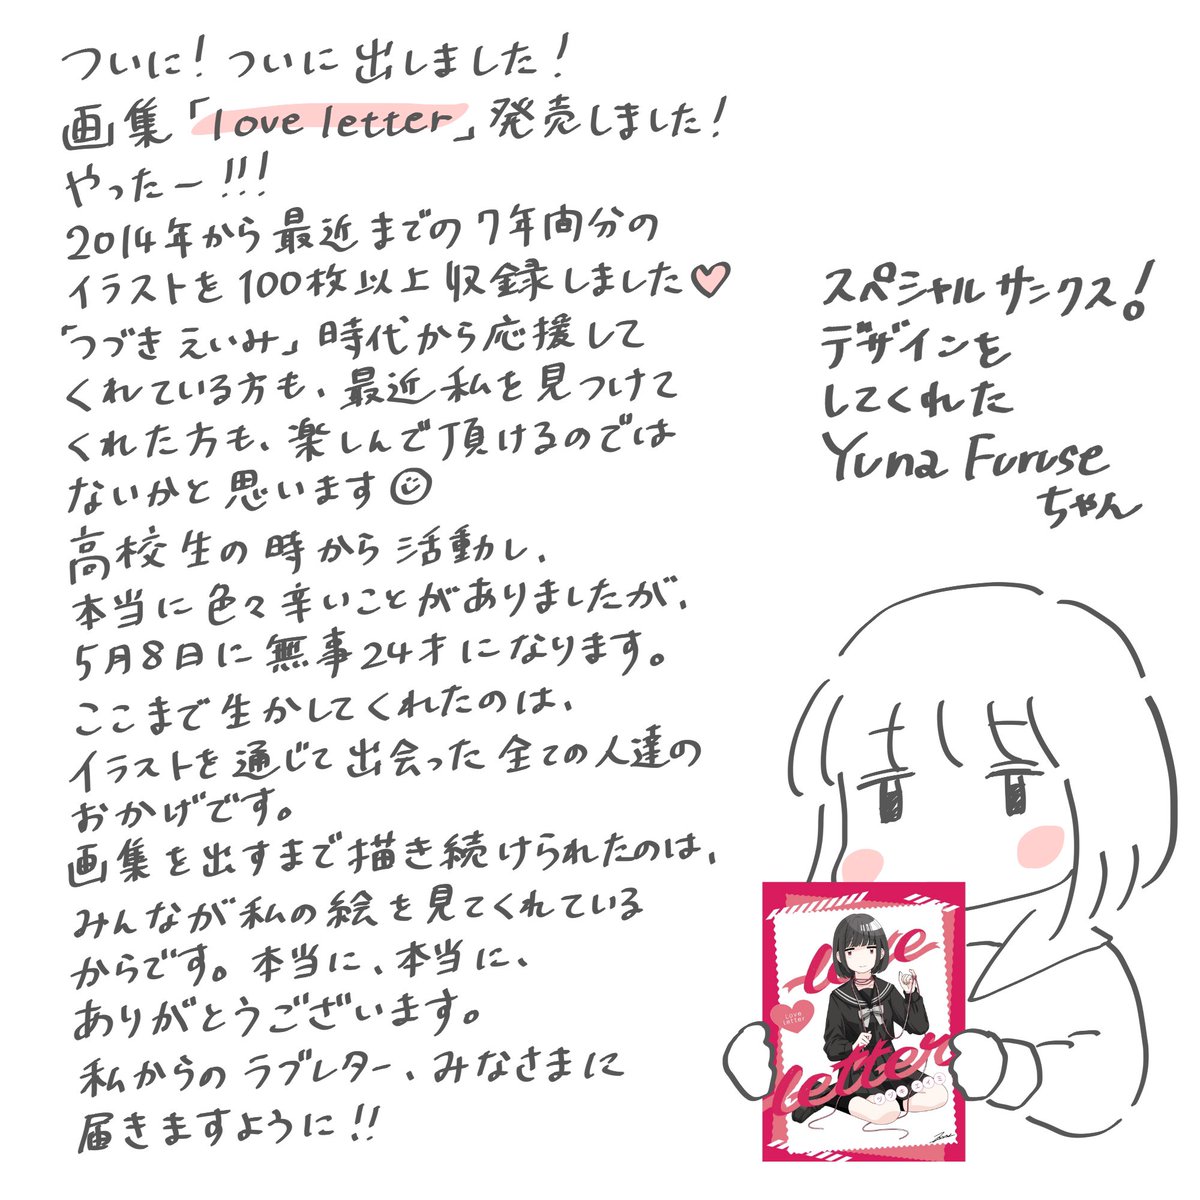 ついに！ついに出しました！
画集「love letter」発売しました！
やったー!!!
2014年から最近までの7年間分の
イラストを100枚以上収録しました♡
「つづきえいみ」時代から応援して
くれている方も、最近私を見つけて
くれた方も、楽しんで頂けるのでは
ないかと思います☺
高校生の時から活動し、
本当に色々辛いことがありましたが、
5月8日に無事24才になります。
ここまで生かしてくれたのは、
イラストを通じて出会った全ての人達の
おかげです。
画集を出すまで描き続けられたのは、
みんなが私の絵を見てくれている
からです。本当に、本当に、
ありがとうございます。
私からのラブレター、みなさまに
届きますように!!
スペシャルサンクス！
デザインを
してくれた
Yuna Furuse
ちゃん
love
Love
letter
letter
ツヅキエイミ